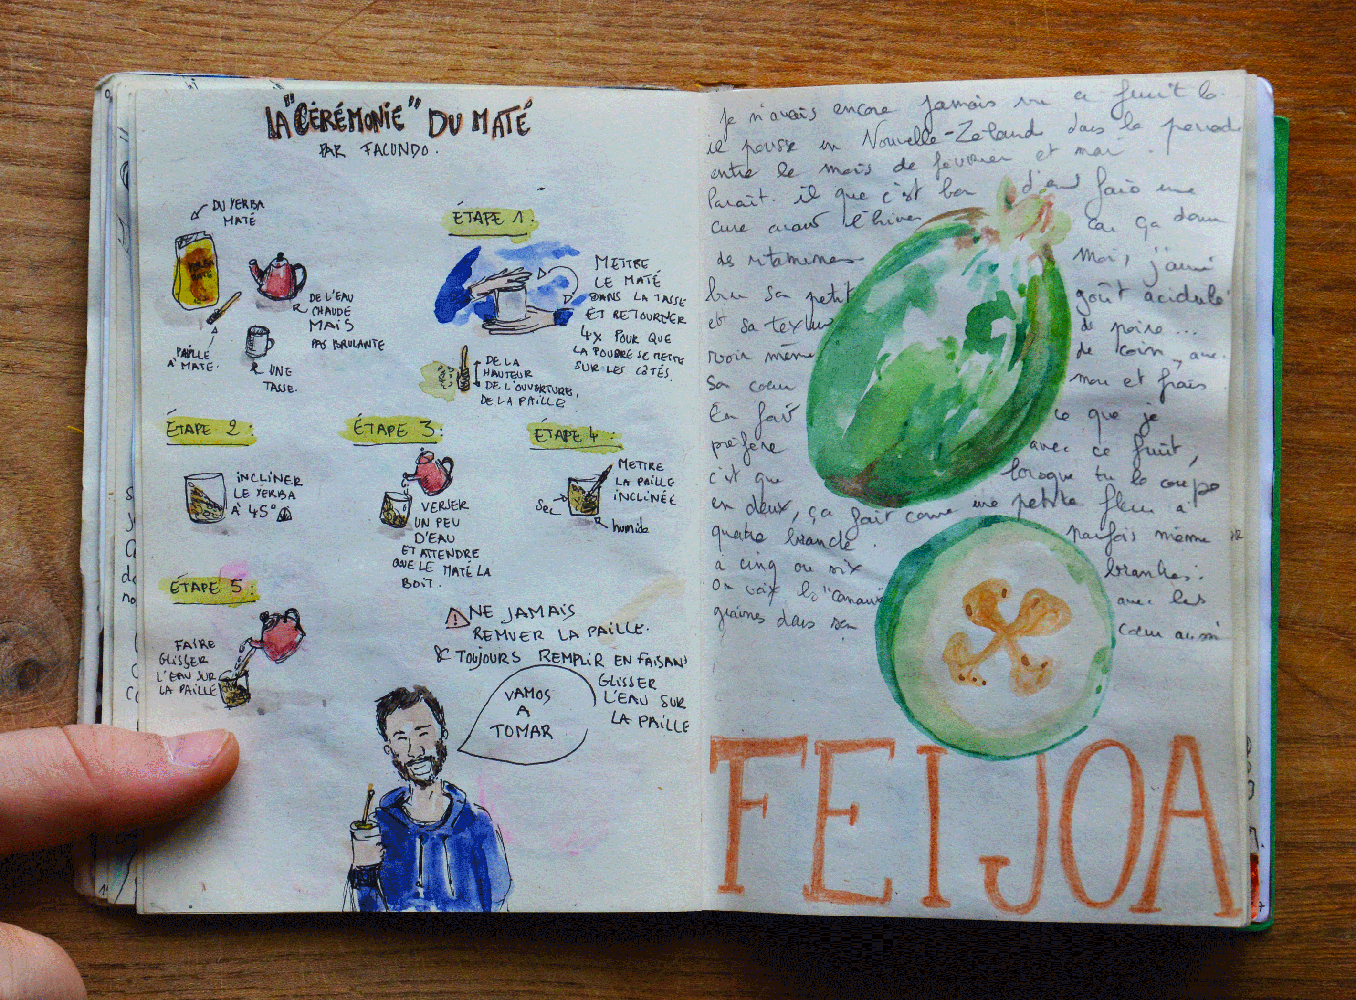 LA "CÉRÉMONIE" DU MATÉ
PAR FACUNDO.
DU YERBA
MATÉ
DE L'EAU
CHAUDE
MAIS
PAS BRULANTE
PAILLE
À MATÉ.
UNE
TASSE.
ÉTAPE 1:
METTRE
LE MATÉ
DANS LA TASSE
ET RETOURNER
4X POUR QUE
LA POUDRE SE METTE
SUR LES CÔTÉS.
DE LA
HAUTEUR
DE L'OUVERTURE,
DE LA PAILLE
ÉTAPE 2:
INCLINER
LE YERBA
À 45°
ÉTAPE 3:
VERSER
UN PEU
D'EAU
ET ATTENDRE
QUE LE MATÉ LA
BOIT.
ÉTAPE 4:
METTRE
LA PAILLE
INCLINÉE
Sec
humide
ÉTAPE 5:
FAIRE
GLISSER
L'EAU SUR
LA PAILLE
NE JAMAIS
REMUER LA PAILLE.
& TOUJOURS REMPLIR EN FAISANT
GLISSER
L'EAU SUR
LA PAILLE
VAMOS
A
TOMAR
Je n'avais encore jamais vu ce fruit là.
il pousse en Nouvelle-Zélande dans la période
entre le mois de février et mai.
Parait il que c'est bon d'en faire une
cure avant l'hiver car ça donne
des vitamines Moi, j'aime
bien son petit goût acidulé
et sa texture de poire...
voir même de coin, avec
son coeur mou et frais
En fait ce que je
préfère avec ce fruit,
c'est que lorsque tu le coupe
en deux, ça fait comme une petite fleur à
quatre branche. parfois même
à cinq ou six branches.
On voit les "canaux" avec les
graines dans son coeur aussi
FEIJOA